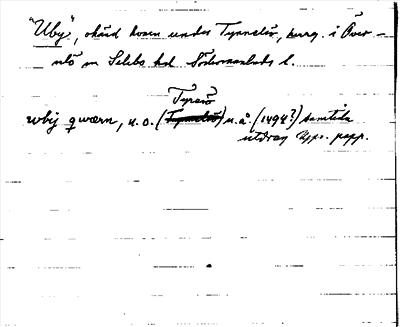 "Uby", okänd kvarn under Tynnelsö, herrg. i Över-
selö sn Selebo hd Södermanlands l.
Tynesö
wbij qwærn, u.o. (Tynnelsö) u.å. (1494?) samtida
utdrag Upps. papp.